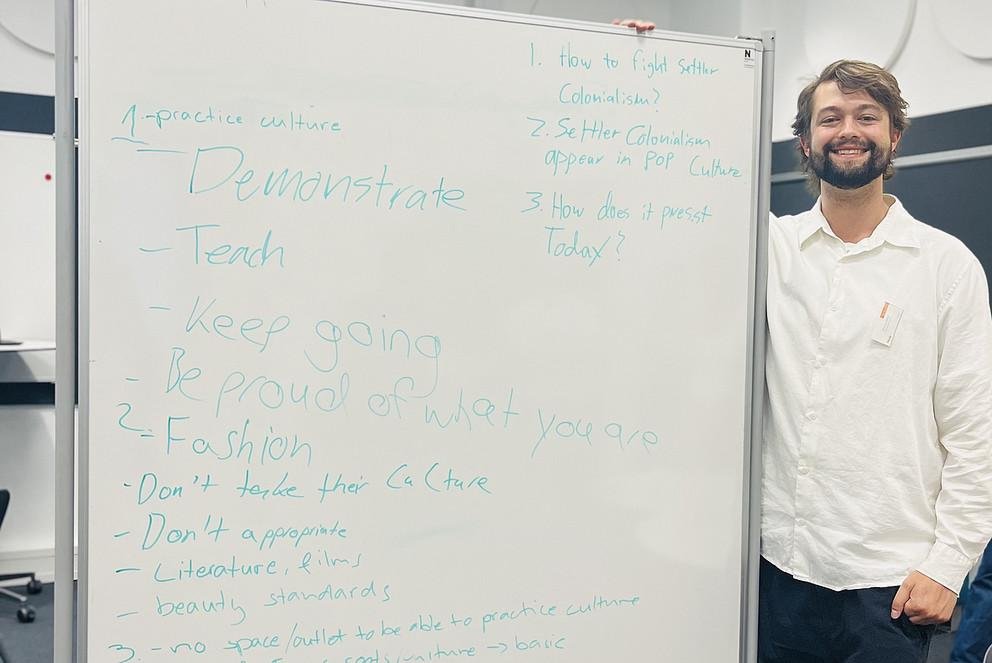 1. How to fight Settler
Colonialism?
2. Settler Colonialism
appear in POP Culture
3. How does it presst
Today?
1.-practice culture
- Demonstrate
- Teach
- Keep going
- Be proud of what you are
2.- Fashion
-Don't take their Culture
- Don't appropriate
- Literature, films
- beauty standards
3. - no space/outlet to be able to practice culture
→ basic
N